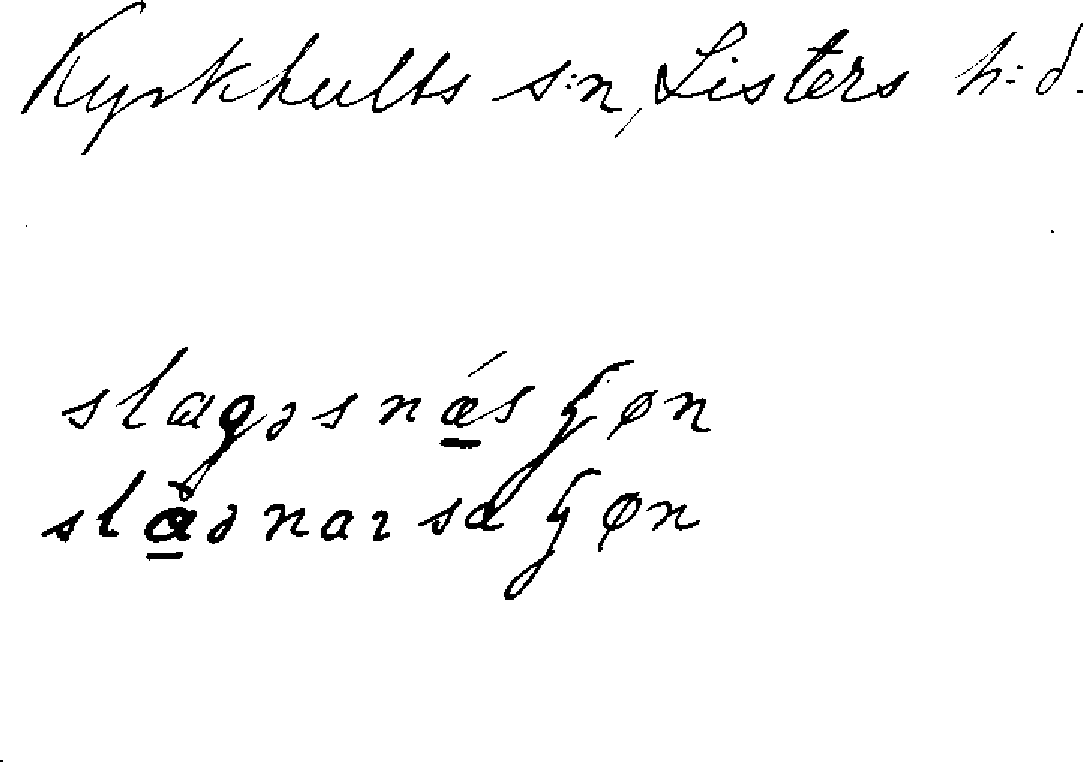 Kyrkhults s:n, Listers h:d.
slagəsnǽs ʃøn
slåənar sa ʃøn